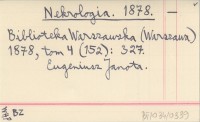 Nekrologia. 1878. —
Biblioteka Warszawska (Warszawa)
1878, tom 4 (152): 327.
Eugeniusz Janota.
BZ
BF/034/0339